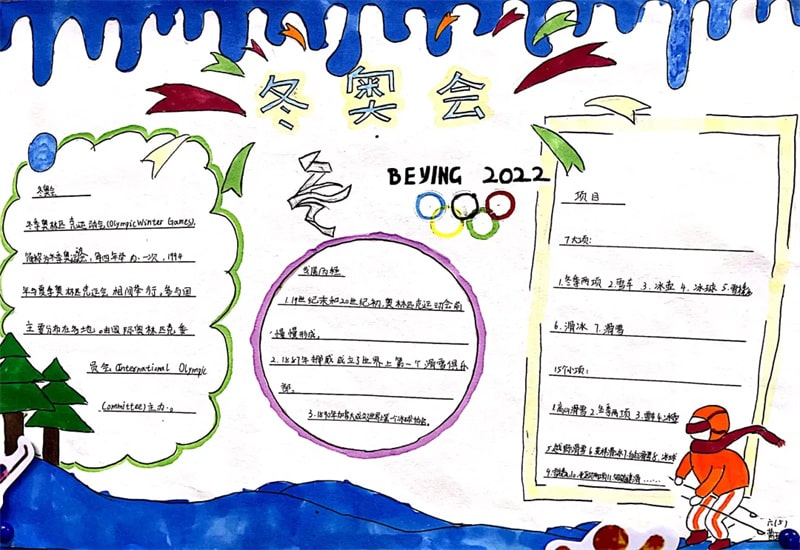 冬奥会
BEIJING 2022
冬奥会
冬季奥林匹克运动会(Olympic Winter Games),
简称为冬季奥运会,每四年举办一次,1994
年与夏季奥林匹克运会相间举行,参与国
主要分布在各地。由国际奥林匹克委
员会(International Olympic
Committee)主办。
发展历程
1.19世纪末和20世纪初,奥林匹克运动会前
慢慢形成。
2.1887年挪威成立了世界上第一个滑雪俱乐
部。
3.1890年加拿大成立世界第一个冰球协会。
项目
7大项:
1.冬季两项 2.雪车 3.冰壶 4.冰球 5.雪橇
6.滑冰 7.滑雪
15个小项:
1.高山滑雪 2.冬季两项 3.雪车 4.冰壶
5.越野滑雪 6.花样滑冰 7.自由滑雪 8.冰球
六(5)